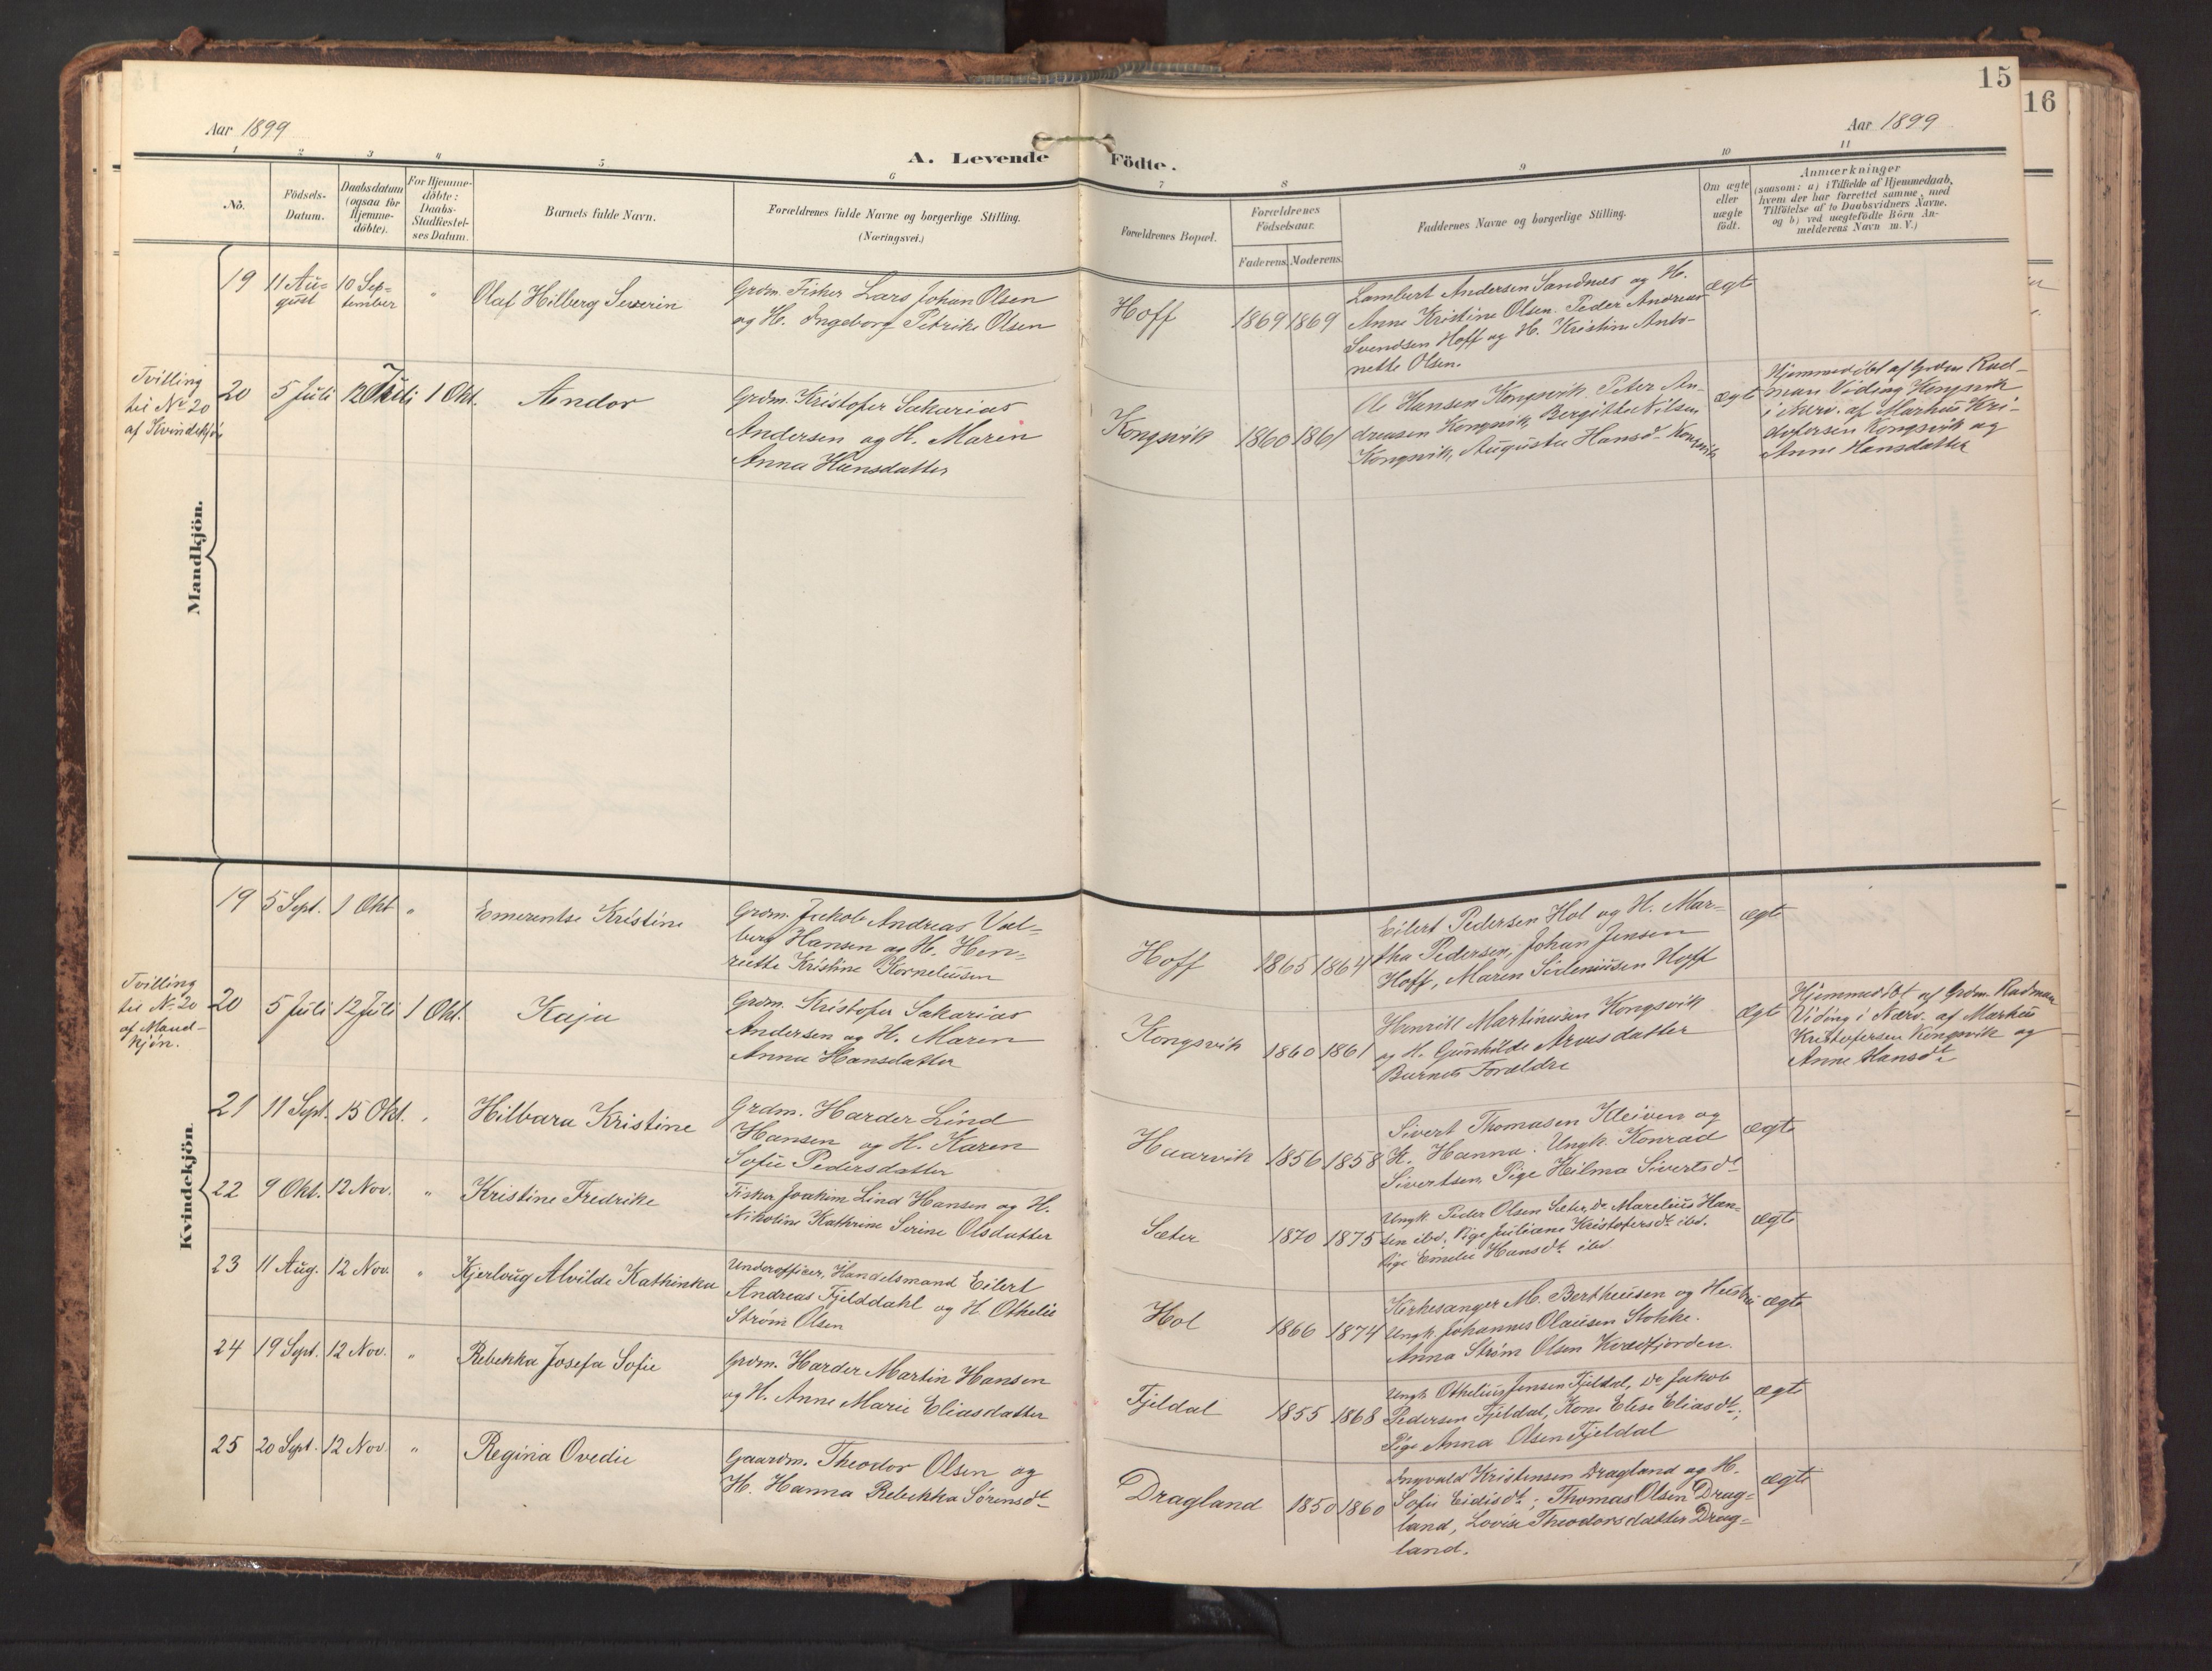 15
16
Aar 1899
Aar 1899
A. Levende Födte.
1 2 3 4 5 6 7 8 9 10 11
Nö.
Födsels-
Datum.
Daabsdatum
(ogsaa for
Hjemme-
döbte).
For Hjemme-
döbte:
Daabs-
Stadfestel-
ses Datum.
Barnets fulde Navn.
Forældrenes fulde Navne og borgerlige Stilling.
(Næringsvei.)
Forældrenes Bopæl.
Forældrenes
Födselsaar.
Faderens. Moderens.
Faddernes Navne og borgerlige Stilling.
Om ægte
eller
uægte
födt.
Anmærkninger
(saasom: a) i Tilfælde af Hjemmedaab,
hvem der har forrettet samme, med
Tilföielse af to Daabsvidners Navne.
og b) ved uegtefödte Börn An-
melderens Navn m. V.)
Mandkjön.
19
11 Au-
gust
10 Sep-
tember
"
Olaf Hilberg Severin
Grdm. Fisker Lars Johan Olsen
og H. Ingeborg Petrike Olsen
Hoff
1869 1869
Lambert Andersen Sandnes og H.
Anne Kristine Olsen. Peder Andreas
Svendsen Hoff og H. Kristine Anto-
nette Olsen.
ægte
Tvilling
til No 20
af Kvindekjön
20
5 Juli
12 Juli
1 Okt.
Andor
Grdm. Kristofer Sakarias
Andersen og H. Maren
Anna Hansdatter
Kongsvik
1860 1861
Ole Hansen Kongsvik. Peter An-
dreasen Kongsvik, Bergitte Nilsen
Kongsvik, Augusta Hansd. Kongsvik
ægte
Hjemmedöbt af Grdm. Rad-
man Viding Kongsvik
i Nærv. af Markus Kri-
stofersen Kongsvik og
Anne Hansdatter
Kvindekjön.
19
5 Sept.
1 Okt
"
Emerentse Kristine
Grdm. Jakob Andreas Val-
berg Hansen og H. Hen-
riette Kristine Korneliusen
Hoff
1865 1864
Eilert Pedersen Hol og H. Mar-
tha Pedersen, Johan Jensen
Hoff, Maren Sideniusen Hoff
ægte
Tvilling
til No 20
af Mand-
kjön.
20
5 Juli
12 Juli
1 Okt.
Kaja
Grdm. Kristofer Sakarias
Andersen og H. Maren
Anna Hansdatter
Kongsvik
1860 1861
Henrik Martinusen Kongsvik
og H. Gunhilde Arnesdatter
Barnets Forældre
Ægte
Hjemmedöbt af Grdm. Radman
Viding i Nærv. af Markus
Kristofersen Kongsvik og
Anne Hansdt.
21
11 Sept.
15 Okt.
"
Hilbara Kristine
Grdm. Harder Lind
Hansen og H. Karen
Sofie Pedersdatter
Haarvik
1856 1858
Sivert Thomasen Kleiven og
H. Hanna. Ungk. Konrad
Sivertsen, Pige Hilma Sivertsdt.
ægte
22
9 Okt.
12 Nov.
"
Kristine Fredrike
Fisker Joakim Lind Hansen og H.
Nikoline Kathrine Serine Olsdatter
Sæter
1870 1875
Ungk. Peder Olsen Sæter, Do. Marelius Han-
sen ibd. Pige Juliane Kristofersdt. ibd.
Pige Emelie Hansdt. ibd.
ægte
23
11 Aug.
12 Nov.
"
Kjerloug Alvilde Kathinka
Underofficer, Handelsmand Eilert
Andreas Fjelddahl og H. Othelie
Strøm Olsen
Hol
1866 1874
Kirkesanger M. Bertheusen og Hustru
Ungk. Johannes Olausen Stokke.
Anna Strøm Olsen Kvædfjorden.
ægte
24
19 Sept.
12 Nov.
"
Rebekka Josefa Sofie
Grdm. Harder Martin Hansen
og H. Anne Marie Eliasdatter
Fjeldal
1855 1868
Ungk. Othelius Jensen Fjeldal, Do. Jakob
Pedersen Fjeldal, Kone Elise Eliasdt.;
Pige Anna Olsen Fjeldal
ægte
25
20 Sept.
12 Nov.
"
Regina Ovedie
Gaardm. Theodor Olsen og
H. Hanna Rebekka Sørensdt.
Dragland
1850 1860
Ingvald Kristensen Dragland og H.
Sofie Eidisdt.; Thomas Olsen Drag-
land, Lovise Theodorsdatter Drag-
land.
ægte